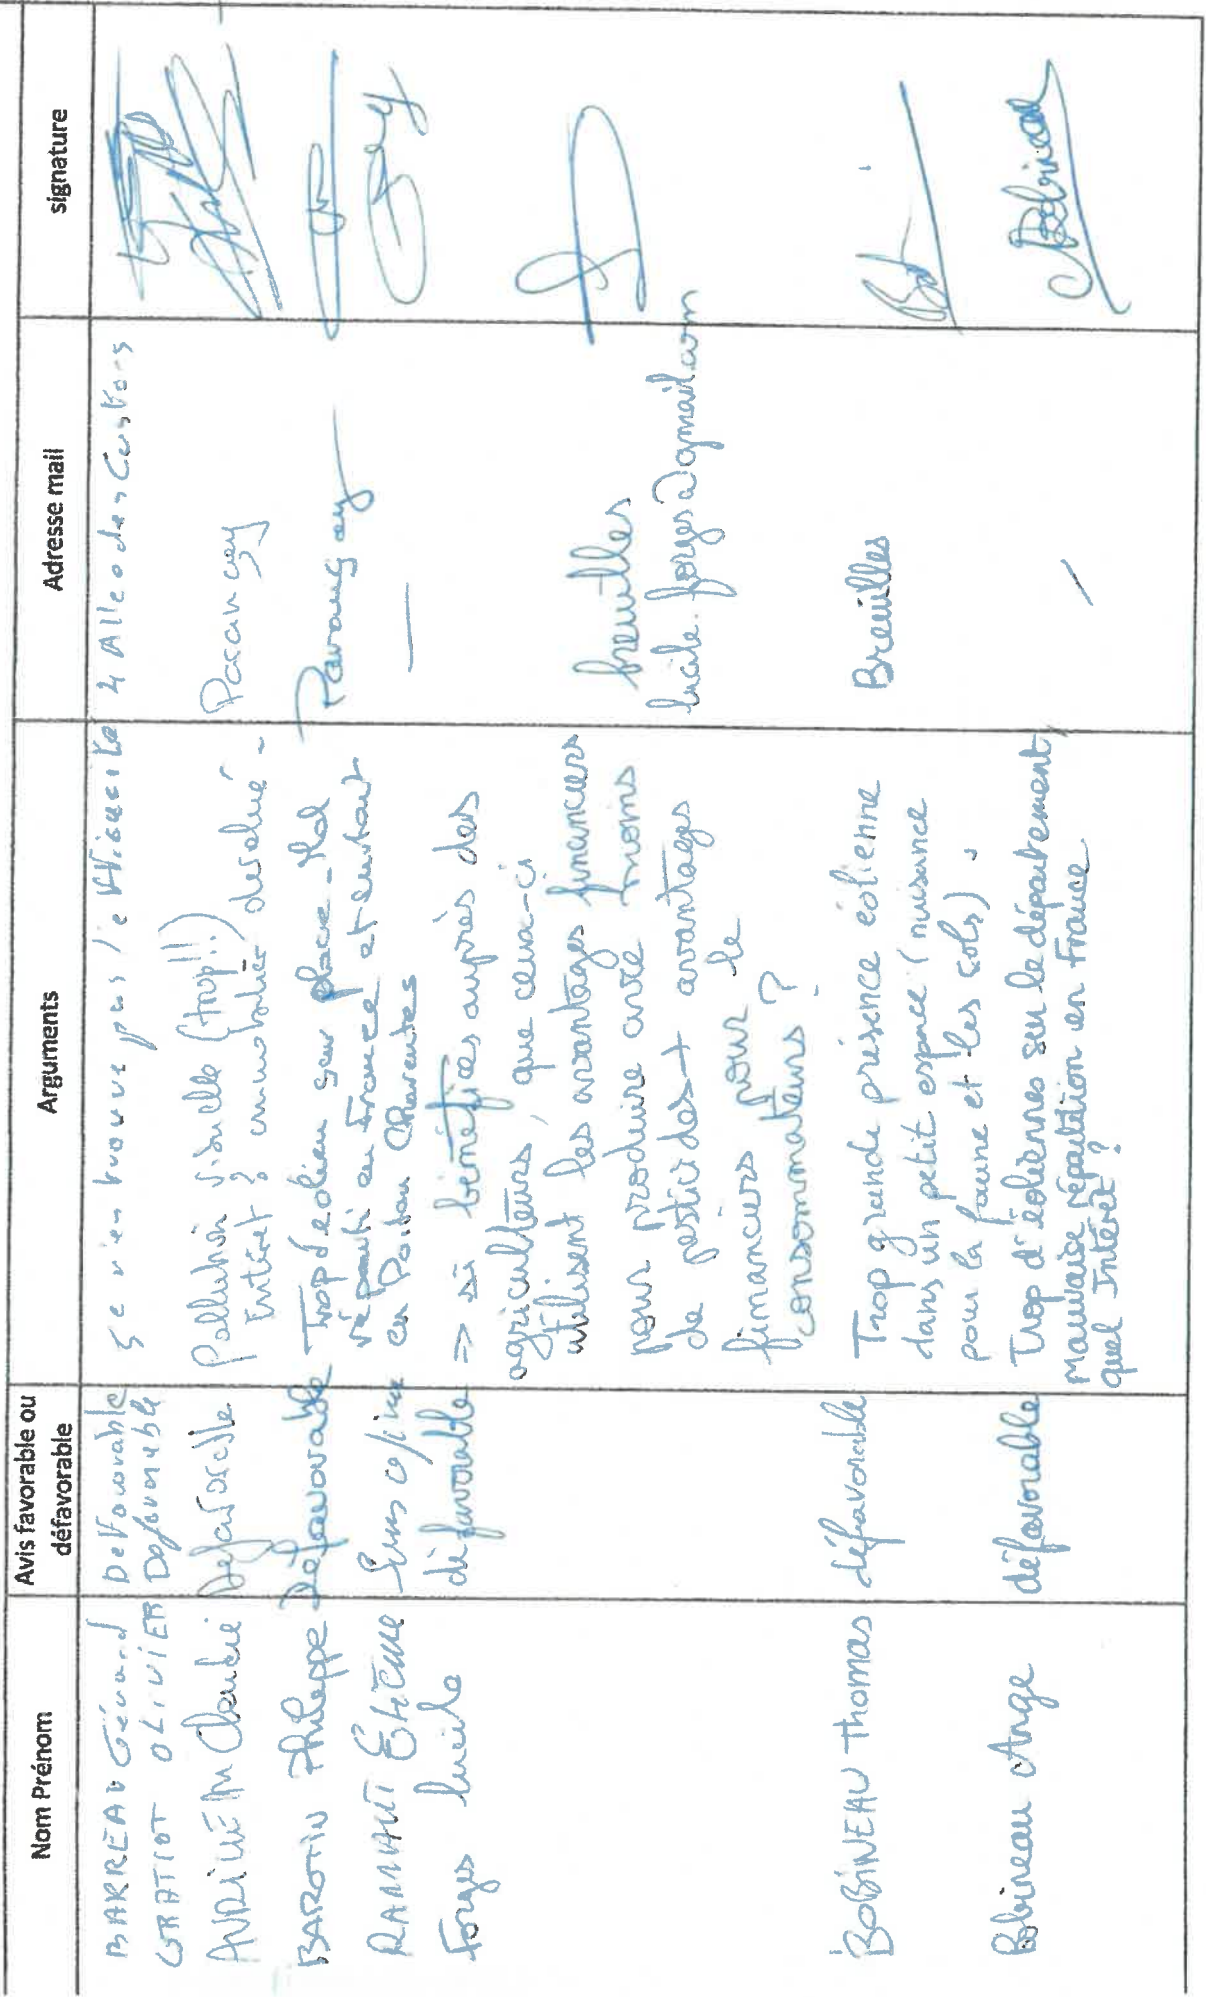 Nom Prénom
Avis favorable ou
défavorable
Arguments
Adresse mail
signature
BARREAU Gérard
Defavorable
Je n'en trouve pas l'efficacité
4 Allee des Castors
GRATIOT OLIVIER
Defavorable
Claudie
Pollution visuelle (trop!!)
Intérêt ? immobilier dévalué -
Parançay
BAROTIN Philippe
Défavorable
Trop d'éolien sur place - Mal
réparti en France et surtout
en Poitou Charentes
Parançay
Etienne
Sans opinion
—
Forges Lucile
défavorable
=> si bénéfices auprès des
agriculteurs, que ceux-ci
utilisent les avantages financiers
pour produire avec moins
de pesticides + avantages
financiers pour le
consommateurs ?
breuilles
lucile.forges@gmail.com
BOBINEAU Thomas
défavorable
Trop grande présence éolienne
dans un petit espace (nuisance
pour la faune et les sols).
Breuilles
Bobineau Ange
défavorable
Trop d'éoliennes sur le département,
mauvaise répartition en France
quel Intérêt ?
/